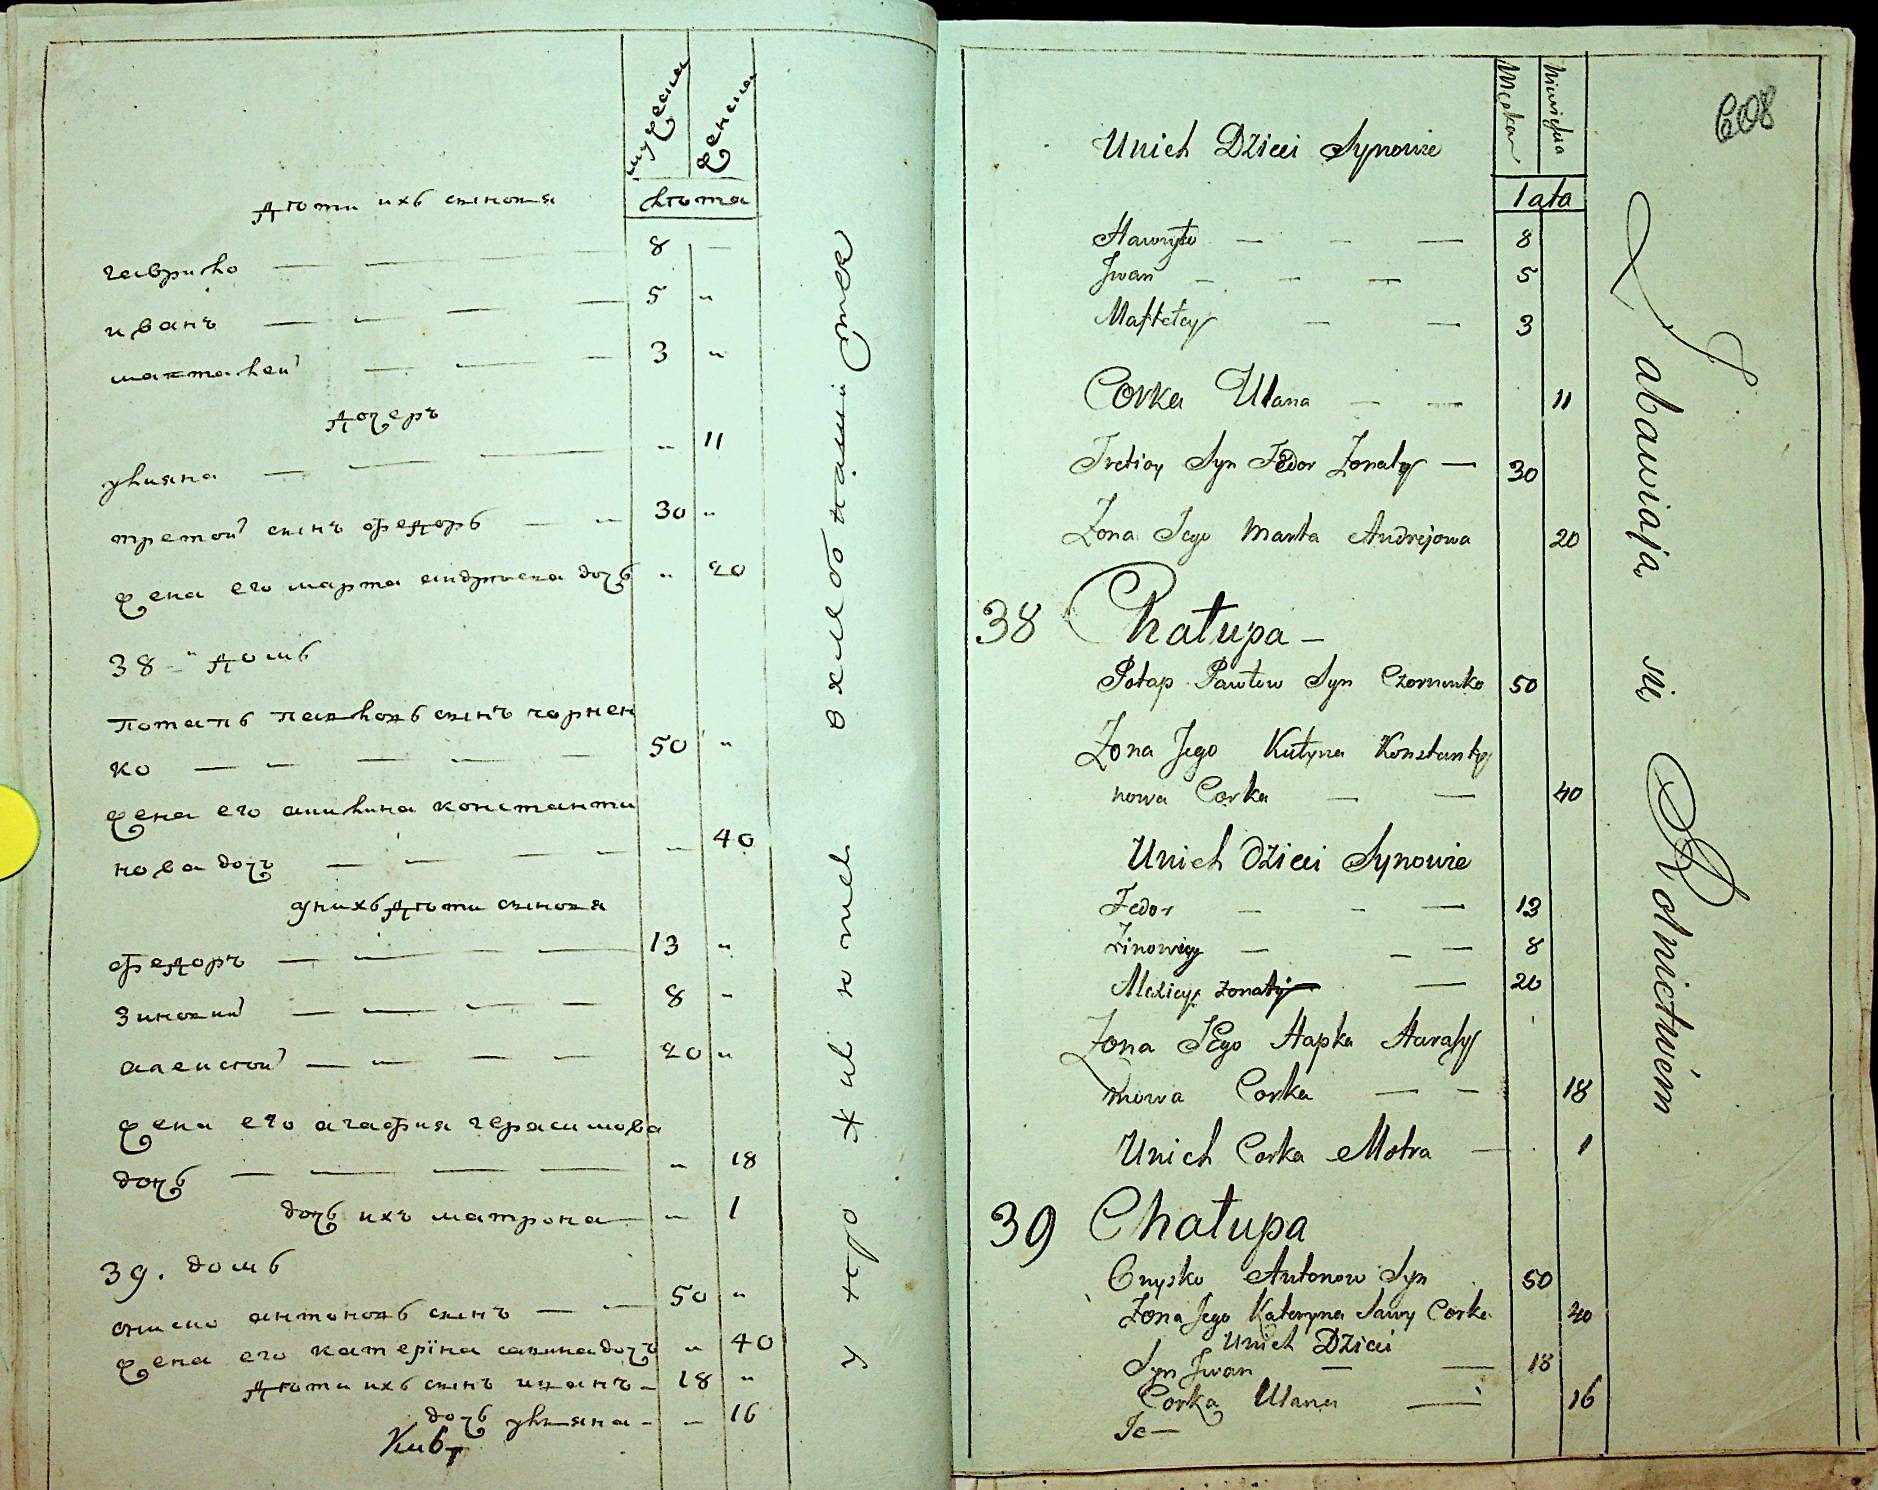 мужеска
женска
лѣта
дѣти ихъ сыновя
гаврило — — — 8 —
иванъ — — — — 5 "
мактавей — — — 3 "
дочеръ
улияна — — — " 11
третой сынъ федоръ — — 30 "
жена его марта андрѣева дочъ " 20
38 - " домъ
потапъ павловъ сынъ чорнен
ко — — — — — 50 "
жена его акилина константи
нова дочъ — — — — " 40
у нихъ дѣти сыновя
федоръ — — — — 13 "
зиновий — — — — 8 "
алексѣй — — — — 20 "
жена его агафия герасимова
дочъ — — — — " 18
дочъ ихъ матрона — " 1
39. домъ
ониско антоновъ сынъ — — 50 "
жена его катерїна савина дочъ " 40
дѣти ихъ сынъ иванъ - 18 "
дочъ улияна - - 16
608
Męska
Niewieścia
Unich Dzieci Synowie
lata
Hawryło — — — 8
Jwan — — — 5
Maftełey — — 3
Corka Ulana — — 11
Tretioy Syn Fedor Zonaty — 30
Zona Jego Marta Andrejowa 20
38 Chałupa —
Potap Pawłow Syn Czornenko 50
Zona Jego Kułyna Konstanty
nowa Corka — — 40
Unich Dzieci Synowie
Fedor — — — 13
Zinowiey — — — 8
Alexiey zonaty — 20
Zona JEgo Hapka Harasy
mowa Corka — — 18
Unich Corka Motra — 1
39 Chałupa
Onysko Antonow Syn 50
Zona Jego Kateryna Sawy Corka 40
Unich Dzieci
Syn Jwan — — 18
Corka Ulana — 16
Je—
Zabawiaja się Rolnictwem